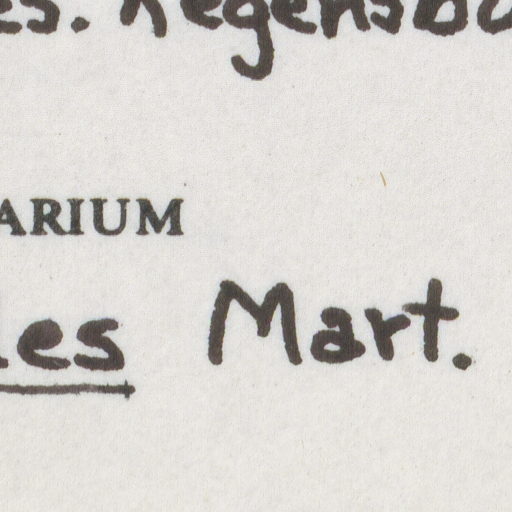 es. Regensbu
ARIUM
es Mart.